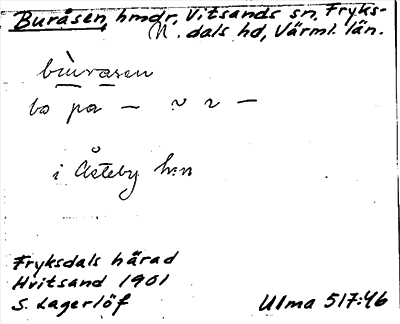 Buråsen, hmdr, Vitsands sn, Fryks-
N. dals hd, Värml. län.
bùrasen
bo på — ~ ~ —
i Åsteby hmn
Fryksdals härad
Hvitsand 1901
S. Lagerlöf
Ulma 517:46